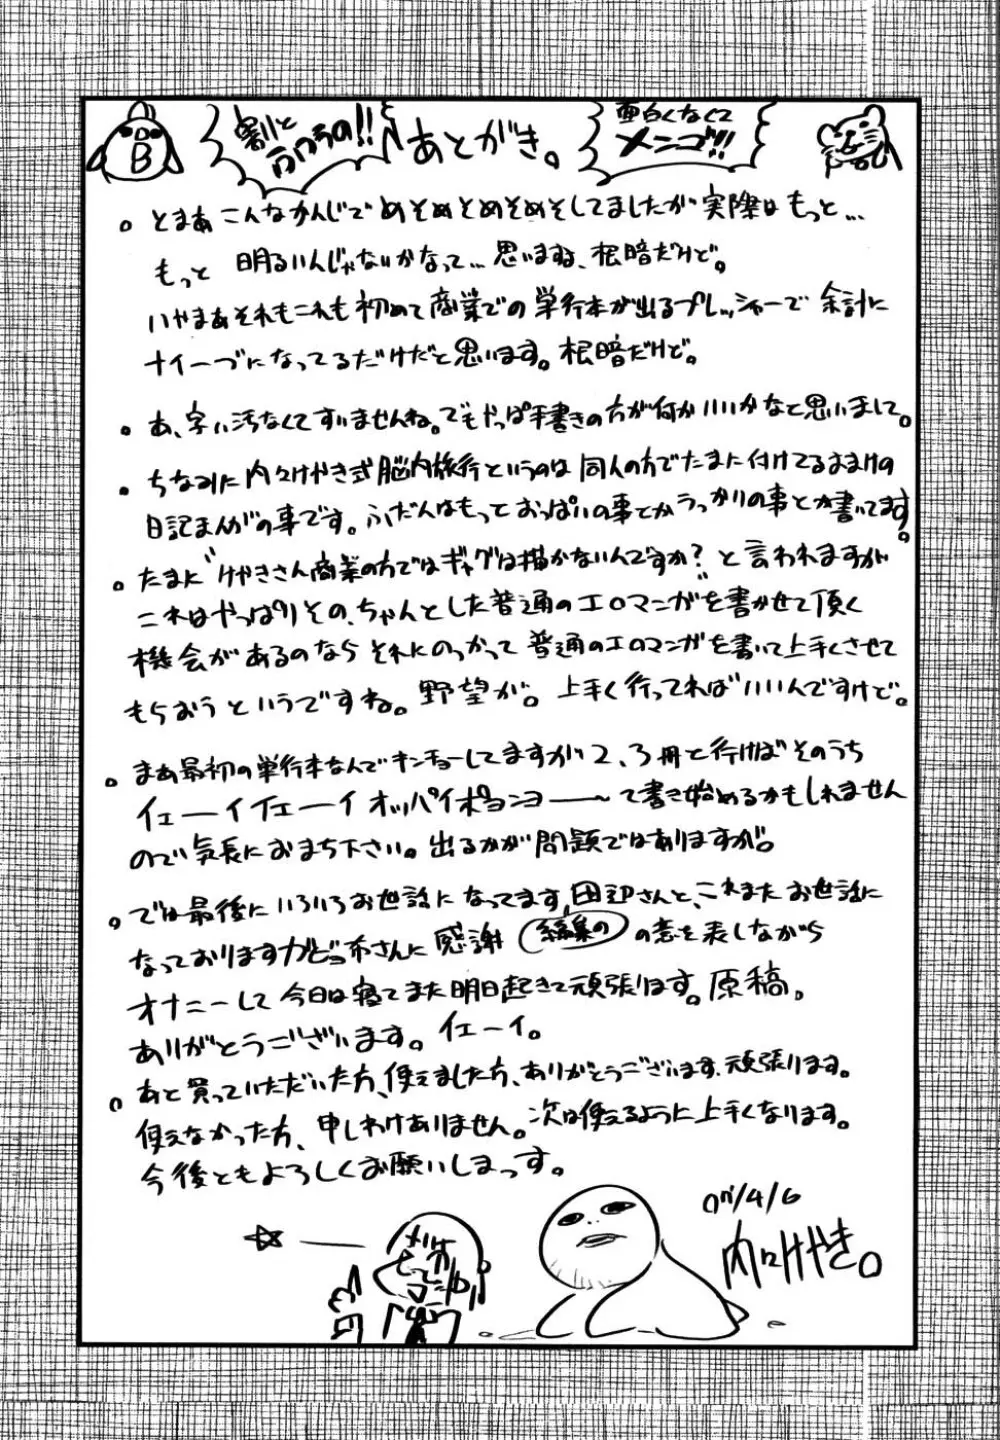 割と
うつうの!!
あとがき。
面白くなくて
メンゴ!!!
B
とまあこんなかんじでめそめそめそめそしてましたが実際はもっと…
もっと 明るいんじゃないかなって…思いますね、根暗だけど。
いやまあそれもこれも初めて商業での単行本が出るプレッシャーで余計に
ナイーブになってるだけだと思います。根暗だけど。
あ、字い汚なくてすいませんね。でもやっぱ手書きの方が何かいいかなと思いまして。
ちなみに内々けやき式脳内旅行というのは同人の方でたまに付けてるおまけの
日記まんがの事です。ふだんはもっとおっぱいの事とかうっかりの事とか書いてます。
たまに"けやきさん商業の方ではギャグは描かないんですか?"と言われますが
これはやっぱりその、ちゃんとした普通のエロマンガを書かせて頂く
機会があるのならそれにのっかって普通のエロマンガを書いて上手くさせて
もらおうというですね。野望が。上手く行ってればいいんですけど。
まあ最初の単行本なんでキンチョーしてますが2、3冊と行けばそのうち
イェーイイェーイオッパイポヨンヨーーーて書き始めるかもしれません
ので気長におまち下さい。出るかが問題ではありますが。
では最後にいろいろお世話になってます田辺さんと、これまたお世話に
なっておりますカビゴ布さんに感謝(編集の)の意を表しながら
オナニーして今日は寝てまた明日起きて頑張ります。原稿。
ありがとうございます。イェーイ。
あと買っていただいた方、使えました方、ありがとうございます、頑張ります。
使えなかった方、申しわけありません。次は使えるように上手くなります。
今後ともよろしくお願いしまっす。
07/4/6
内々けやき。